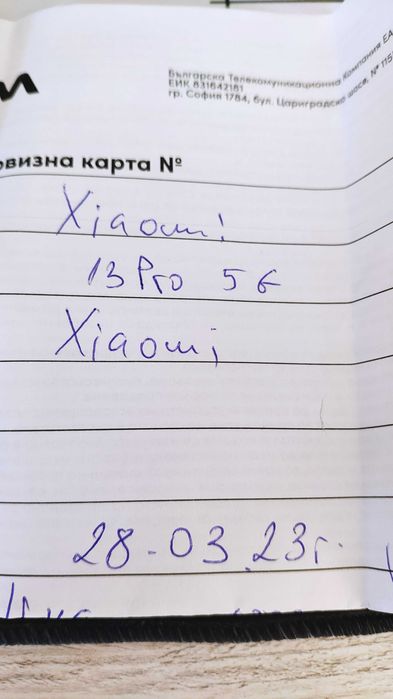 Българска Телекомуникационна Компания ЕА
ЕИК 831642181
гр. София 1784, бул. Цариградско шосе, № 115
овизна карта №
Xiaomi
13 Pro 5G
Xiaomi
28.03.23г.